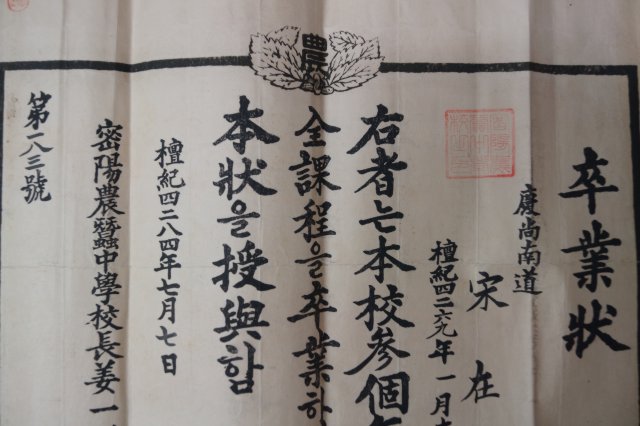 卒業狀
慶尙南道
宋在
檀紀四二六九年一月
右者는本校參個
全課程을卒業하
本狀을授與함
檀紀四二八四年七月七日
密陽農蠶中學校長姜一
第一八三號
農